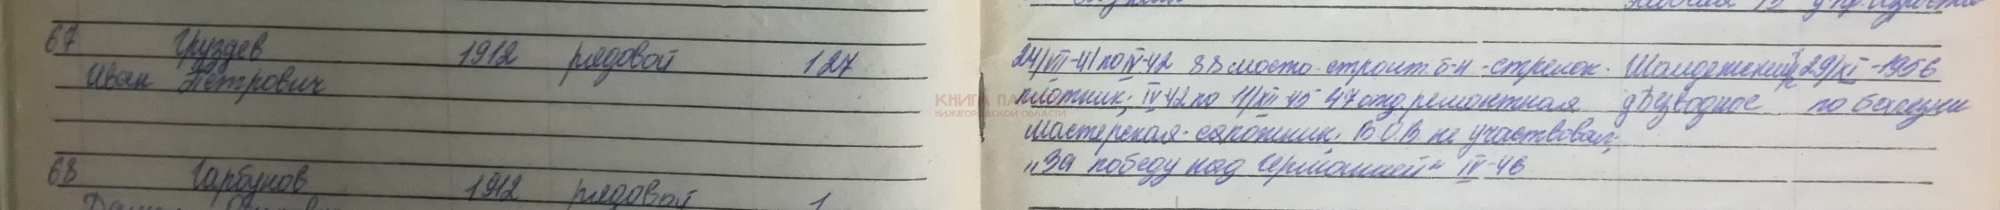 67 Груздев 1912 рядовой 127
Иван Петрович
24/VII-41 по IV-42 88 мосто-строит. б-н - стрелок. 29/XI-1956
плотник; IV-42 по 11/XII-45 47 отд. ремонтная д Безводное по болезни
мастерская - сапожник. В О.В не участвовал;
„За победу над Германией" IV-46
КНИГА ПА
НИЖЕГОРОДСКОЙ ОБЛАСТИ
68 Гарбунов 1912 рядовой 1